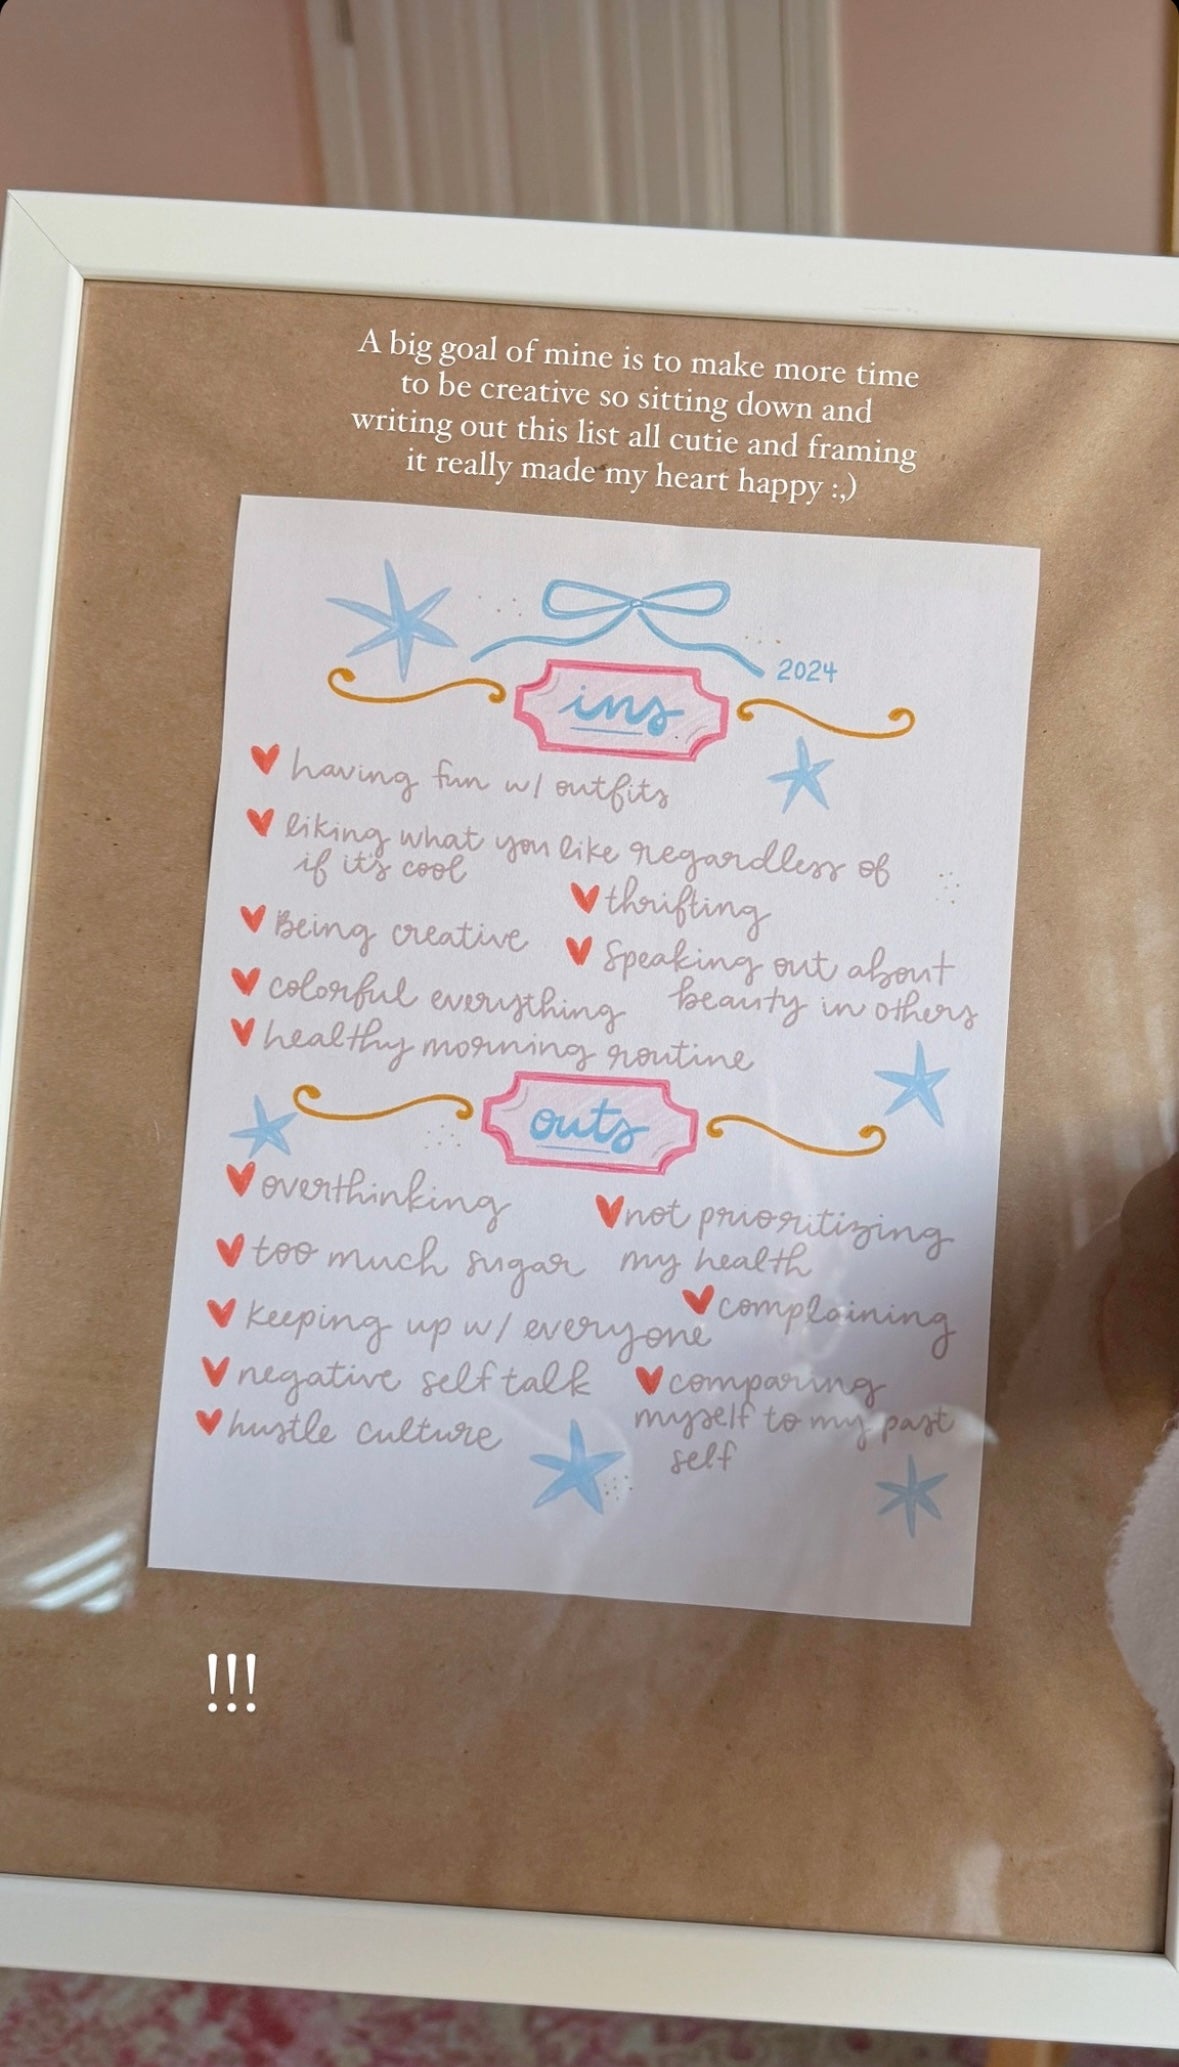 A big goal of mine is to make more time
to be creative so sitting down and
writing out this list all cutie and framing
it really made my heart happy :,)
2024
ins
having fun w/ outfits
liking what you like regardless of
if it's cool
thrifting
Being creative
Speaking out about
beauty in others
colorful everything
healthy morning routine
outs
overthinking
not prioritizing
my health
too much sugar
complaining
keeping up w/ everyone
negative self talk
comparing
myself to my past
self
hustle culture
!!!